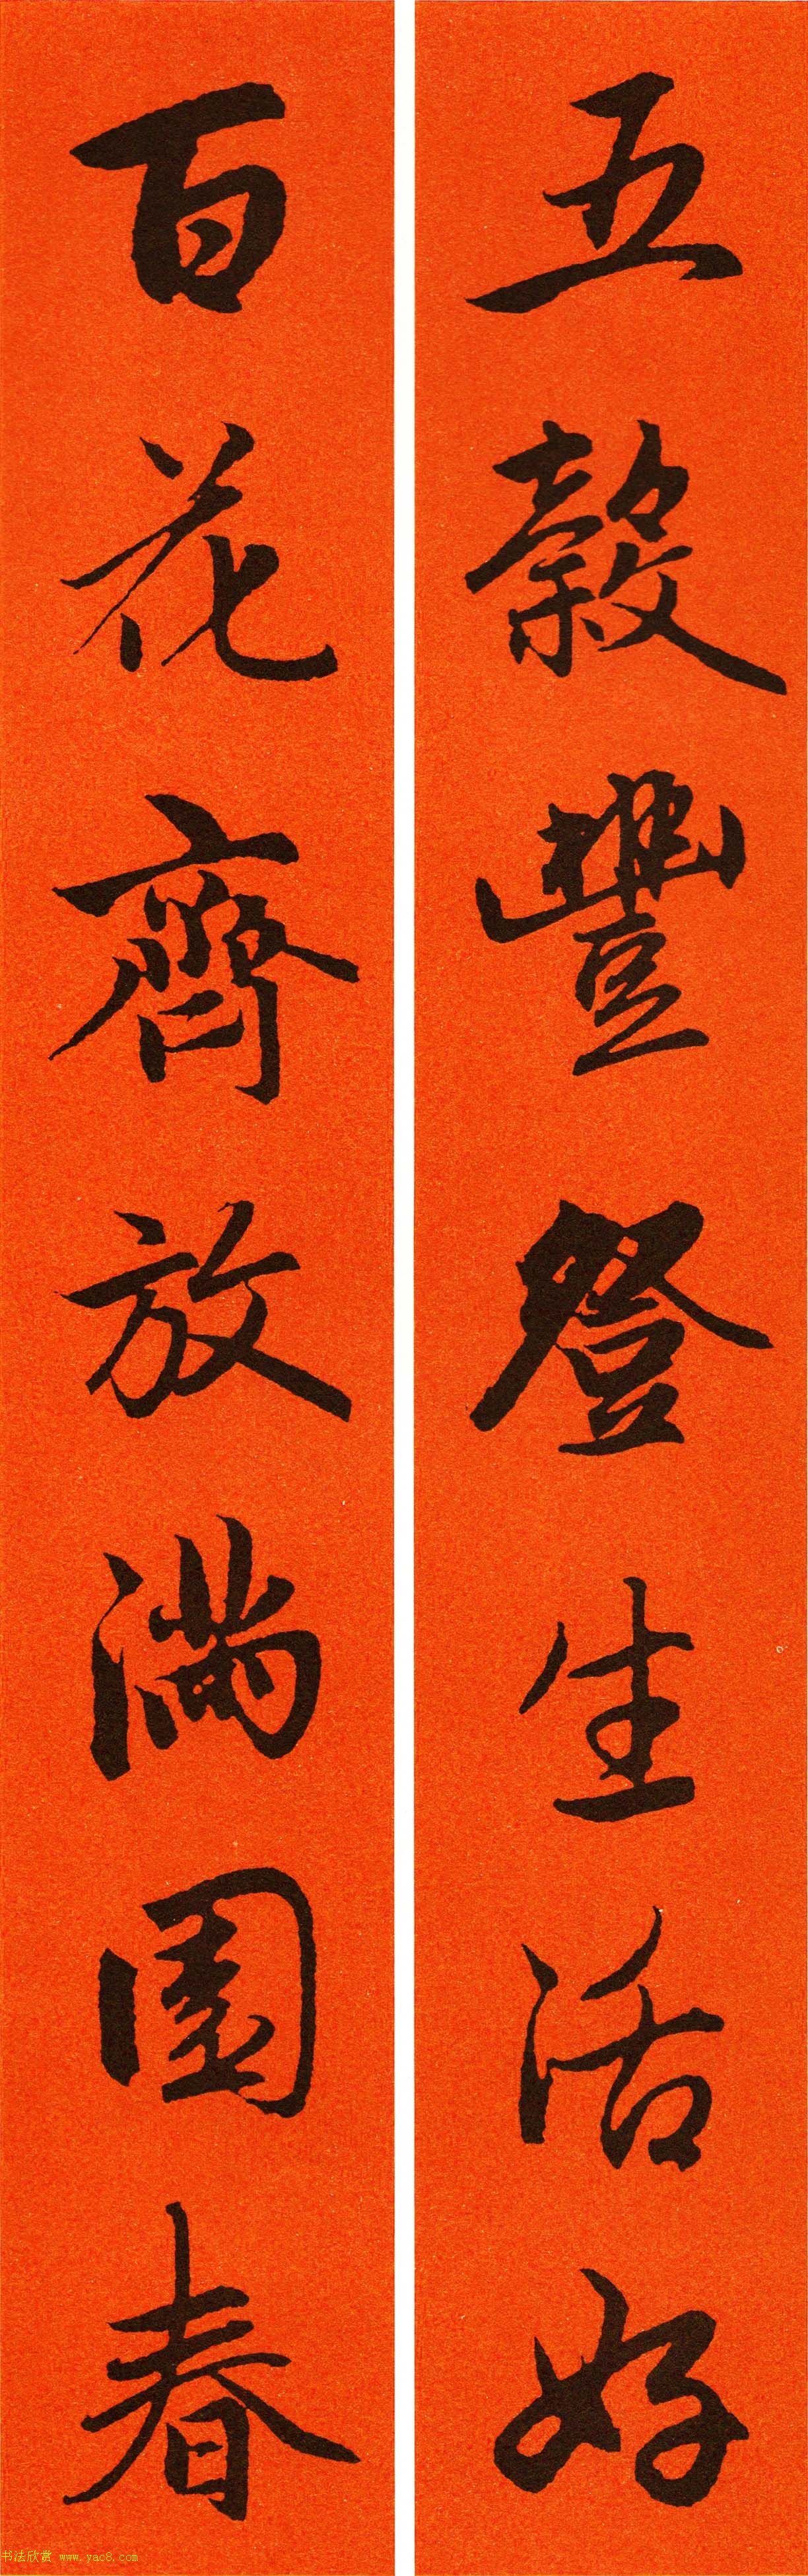 五穀豐登生活好
百花齊放满園春
书法欣赏 www.yac8.com